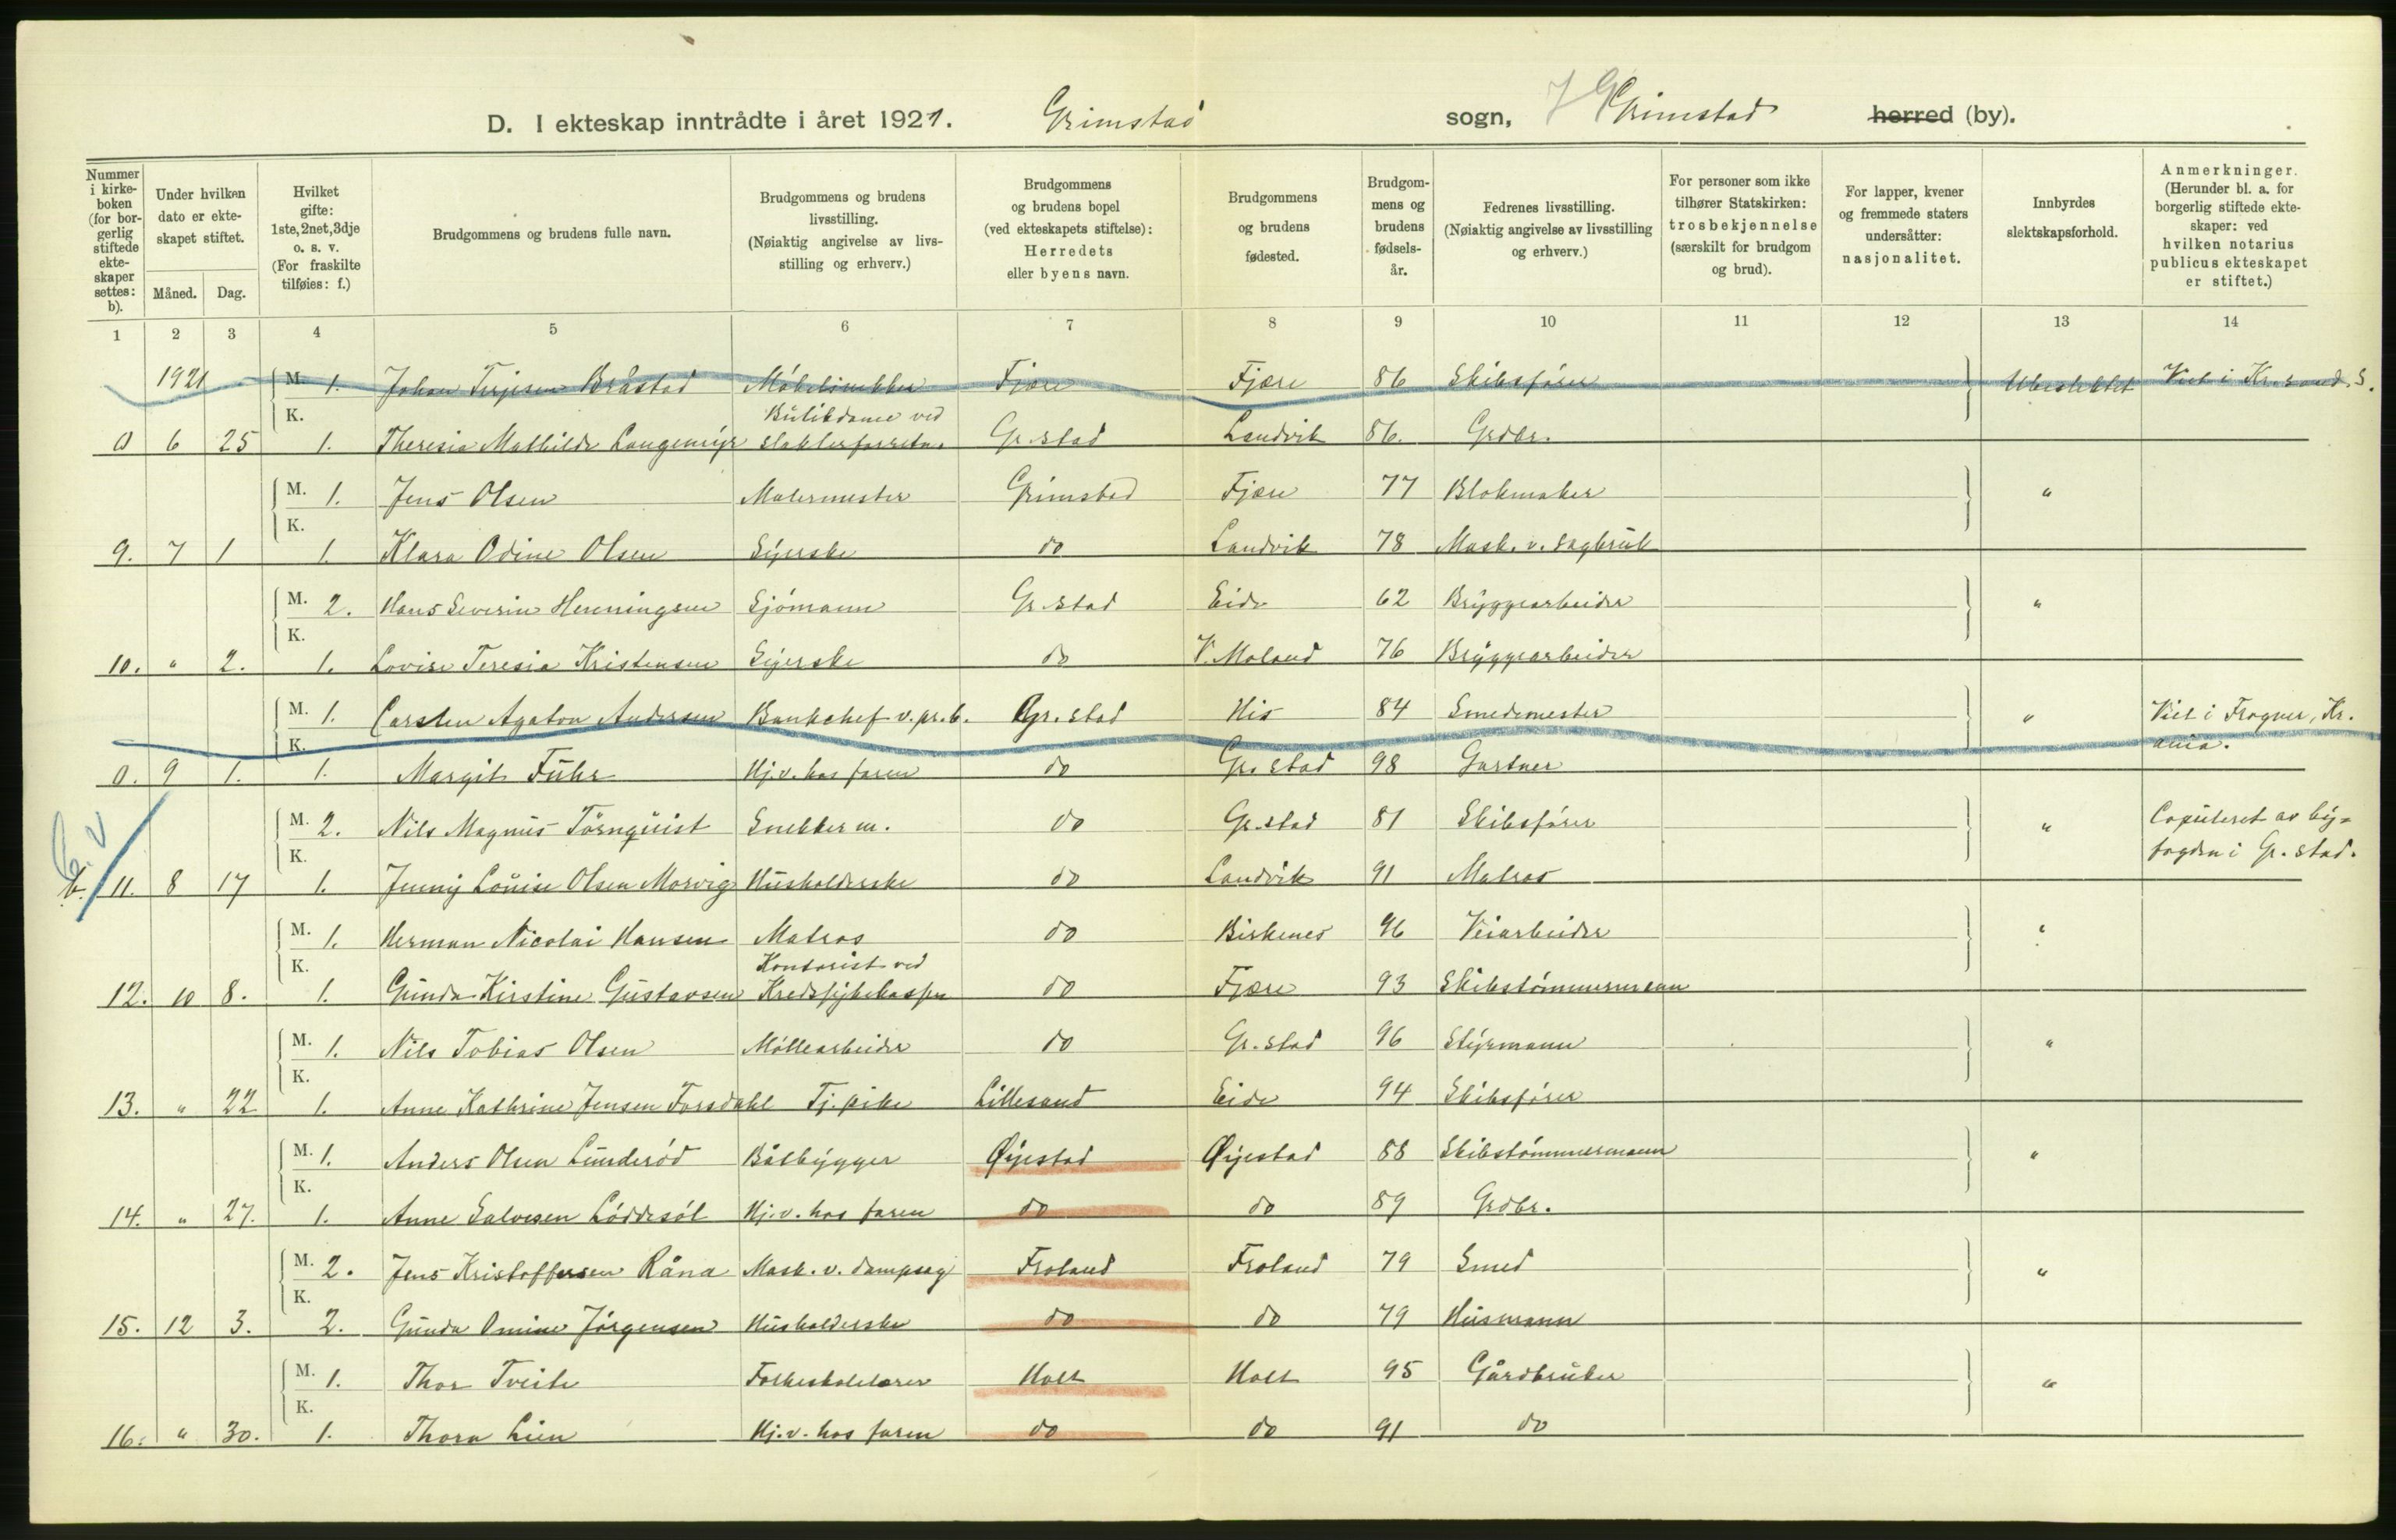 D. I ekteskap inntrådte i året 1921. Grimstad sogn, 7 G Grimstad herred (by).
Nummer i kirke- boken (for bor- gerlig stiftede ekte- skaper settes: b).
Under hvilken dato er ekte- skapet stiftet.
Måned. Dag.
Hvilket gifte: 1ste, 2net, 3dje o. s. v. (For fraskilte tilføies: f.)
Brudgommens og brudens fulle navn.
Brudgommens og brudens livsstilling. (Nøiaktig angivelse av livs- stilling og erhverv.)
Brudgommens og brudens bopel (ved ekteskapets stiftelse): Herredets eller byens navn.
Brudgommens og brudens fødested.
Brudgom- mens og brudens fødsels- år.
Fedrenes livsstilling. (Nøiaktig angivelse av livsstilling og erhverv.)
For personer som ikke tilhører Statskirken: trosbekjennelse (særskilt for brudgom og brud).
For lapper, kvener og fremmede staters undersåtter: nasjonalitet.
Innbyrdes slektskapsforhold.
Anmerkninger. (Herunder bl. a. for borgerlig stiftede ekte- skaper: ved hvilken notarius publicus ekteskapet er stiftet.)
1 2 3 4 5 6 7 8 9 10 11 12 13 14
1921 M. 1. Johan Terjesen Bråstad Møbelsnekker Fjære Fjære 86 Skibsfører Ubeslektet Viet i Kr.sand. S.
K. Butikdame ved
0 6 25 1. Theresia Mathilde Langemyr slakterforretn. Gr.stad Landvik 86. Grdbr.
M. 1. Jens Olsen Malermester Grimstad Fjære 77 Blokmaker "
K.
9. 7 1 1. Klara Odine Olsen Syerske do Landvik 78 Mask. v. sagbruk
M. 2. Hans Severin Henningsen Sjømann Gr.stad Eide 62 Bryggearbeider "
K.
10. " 2. 1. Lovise Teresia Kristensen Syerske do V. Moland 76 Bryggearbeider
M. 1. Carsten Agaton Andersen Bankchef v. pr. b. Gr.stad His 84 Smedmester " Viet i Frogner, Kr.
K. ania.
0. 9 1. 1. Margit Fuhr Hj.v. hos faren do Gr.stad 98 Gartner
M. 2. Nils Magnus Törnquist Snekker m. do Gr.stad 81 Skibsfører " Copuleret av by=
K. fogden i Gr.stad.
b. 11. 8 17 1. Jenny Louise Olsen Morvig Husholderske do Landvik 91 Matros
M. 1. Herman Nicolai Hansen Matros do Birkenes 96 Veiarbeider "
K. Kontorist ved
12. 10 8. 1. Gunda Kirstine Gustavsen Kredssykekassen do Fjære 93 Skibstømmermann
M. 1. Nils Tobias Olsen Møllearbeider do Gr.stad 96 Styrmann "
K.
13. " 22 1. Anne Kathrine Jensen Forsdahl Tj. pike Lillesand Eide 94 Skibsfører
M. 1. Anders Olsen Lunderød Båtbygger Øiestad Øiestad 88 Skibstømmermann "
K.
14. " 27. 1. Anne Salvesen Løddesøl Hj.v. hos faren do do 89 Grdbr.
M. 2. Jens Kristoffersen Råna Mask. v. dampsag Froland Froland 79 Smed "
K.
15. 12 3. 2. Gunda Omine Jørgensen Husholderske do do 79 Husmann
M. 1. Thor Tveite Folkeskolelærer Holt Holt 95 Gårdbruker "
K.
16. " 30. 1. Thora Lien Hj.v. hos faren do do 91 do